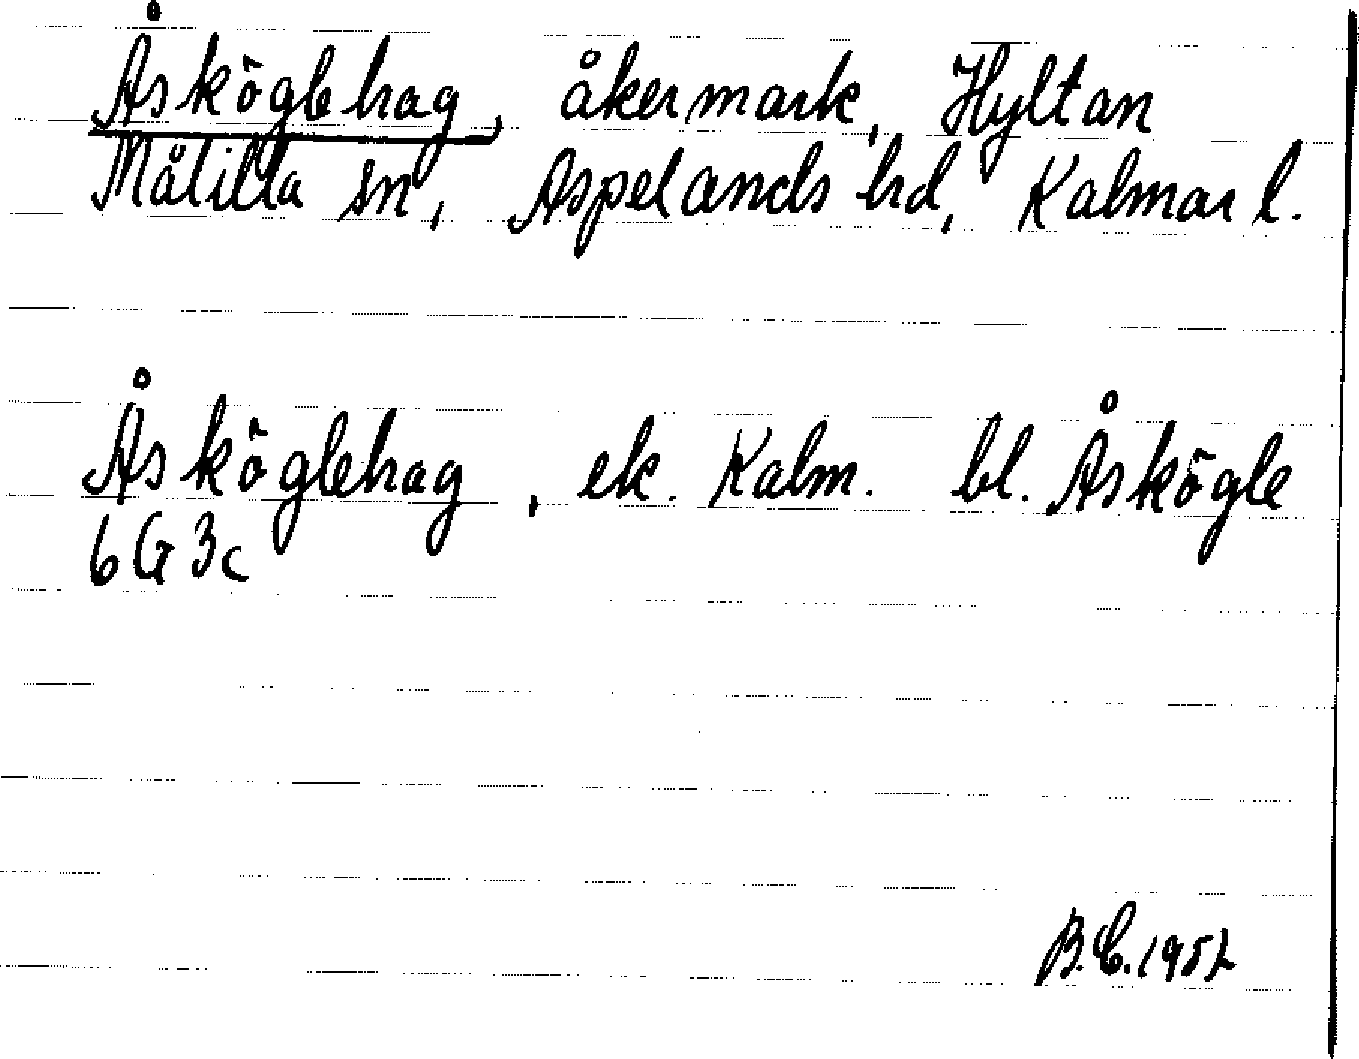 Åsköglehag, åkermark, Hyltan
Målilla sn, Aspelands hd, Kalmar l.
Åsköglehag, ek. Kalm. bl. Åskögle
6G3c
B.C. 1952